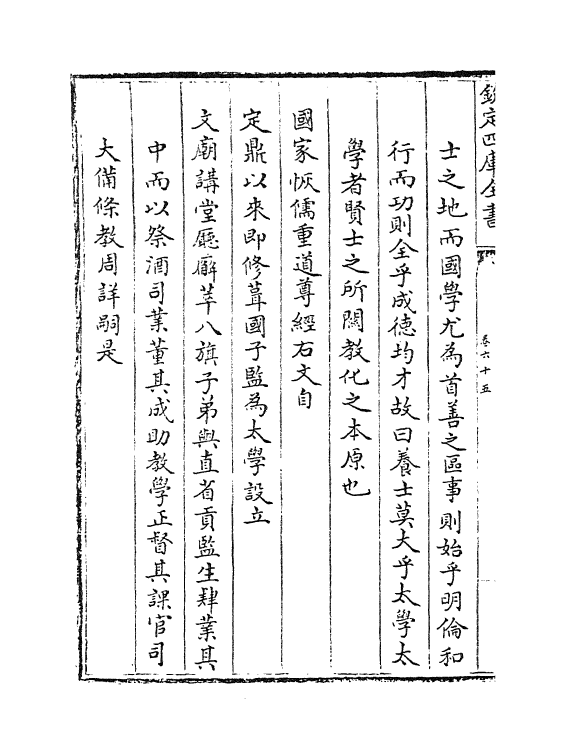 欽定四庫全書
卷六十五
士之地而國學尤為首善之區事則始乎明倫和
行而功則全乎成徳均才故曰養士莫大乎太學太
學者賢士之所關教化之本原也
國家恢儒重道尊經右文自
定鼎以來即修葺國子監為太學設立
文廟講堂廳廨萃八旗子弟與直省貢監生肄業其
中而以祭酒司業董其成助教學正督其課官司
大備條教周詳嗣是